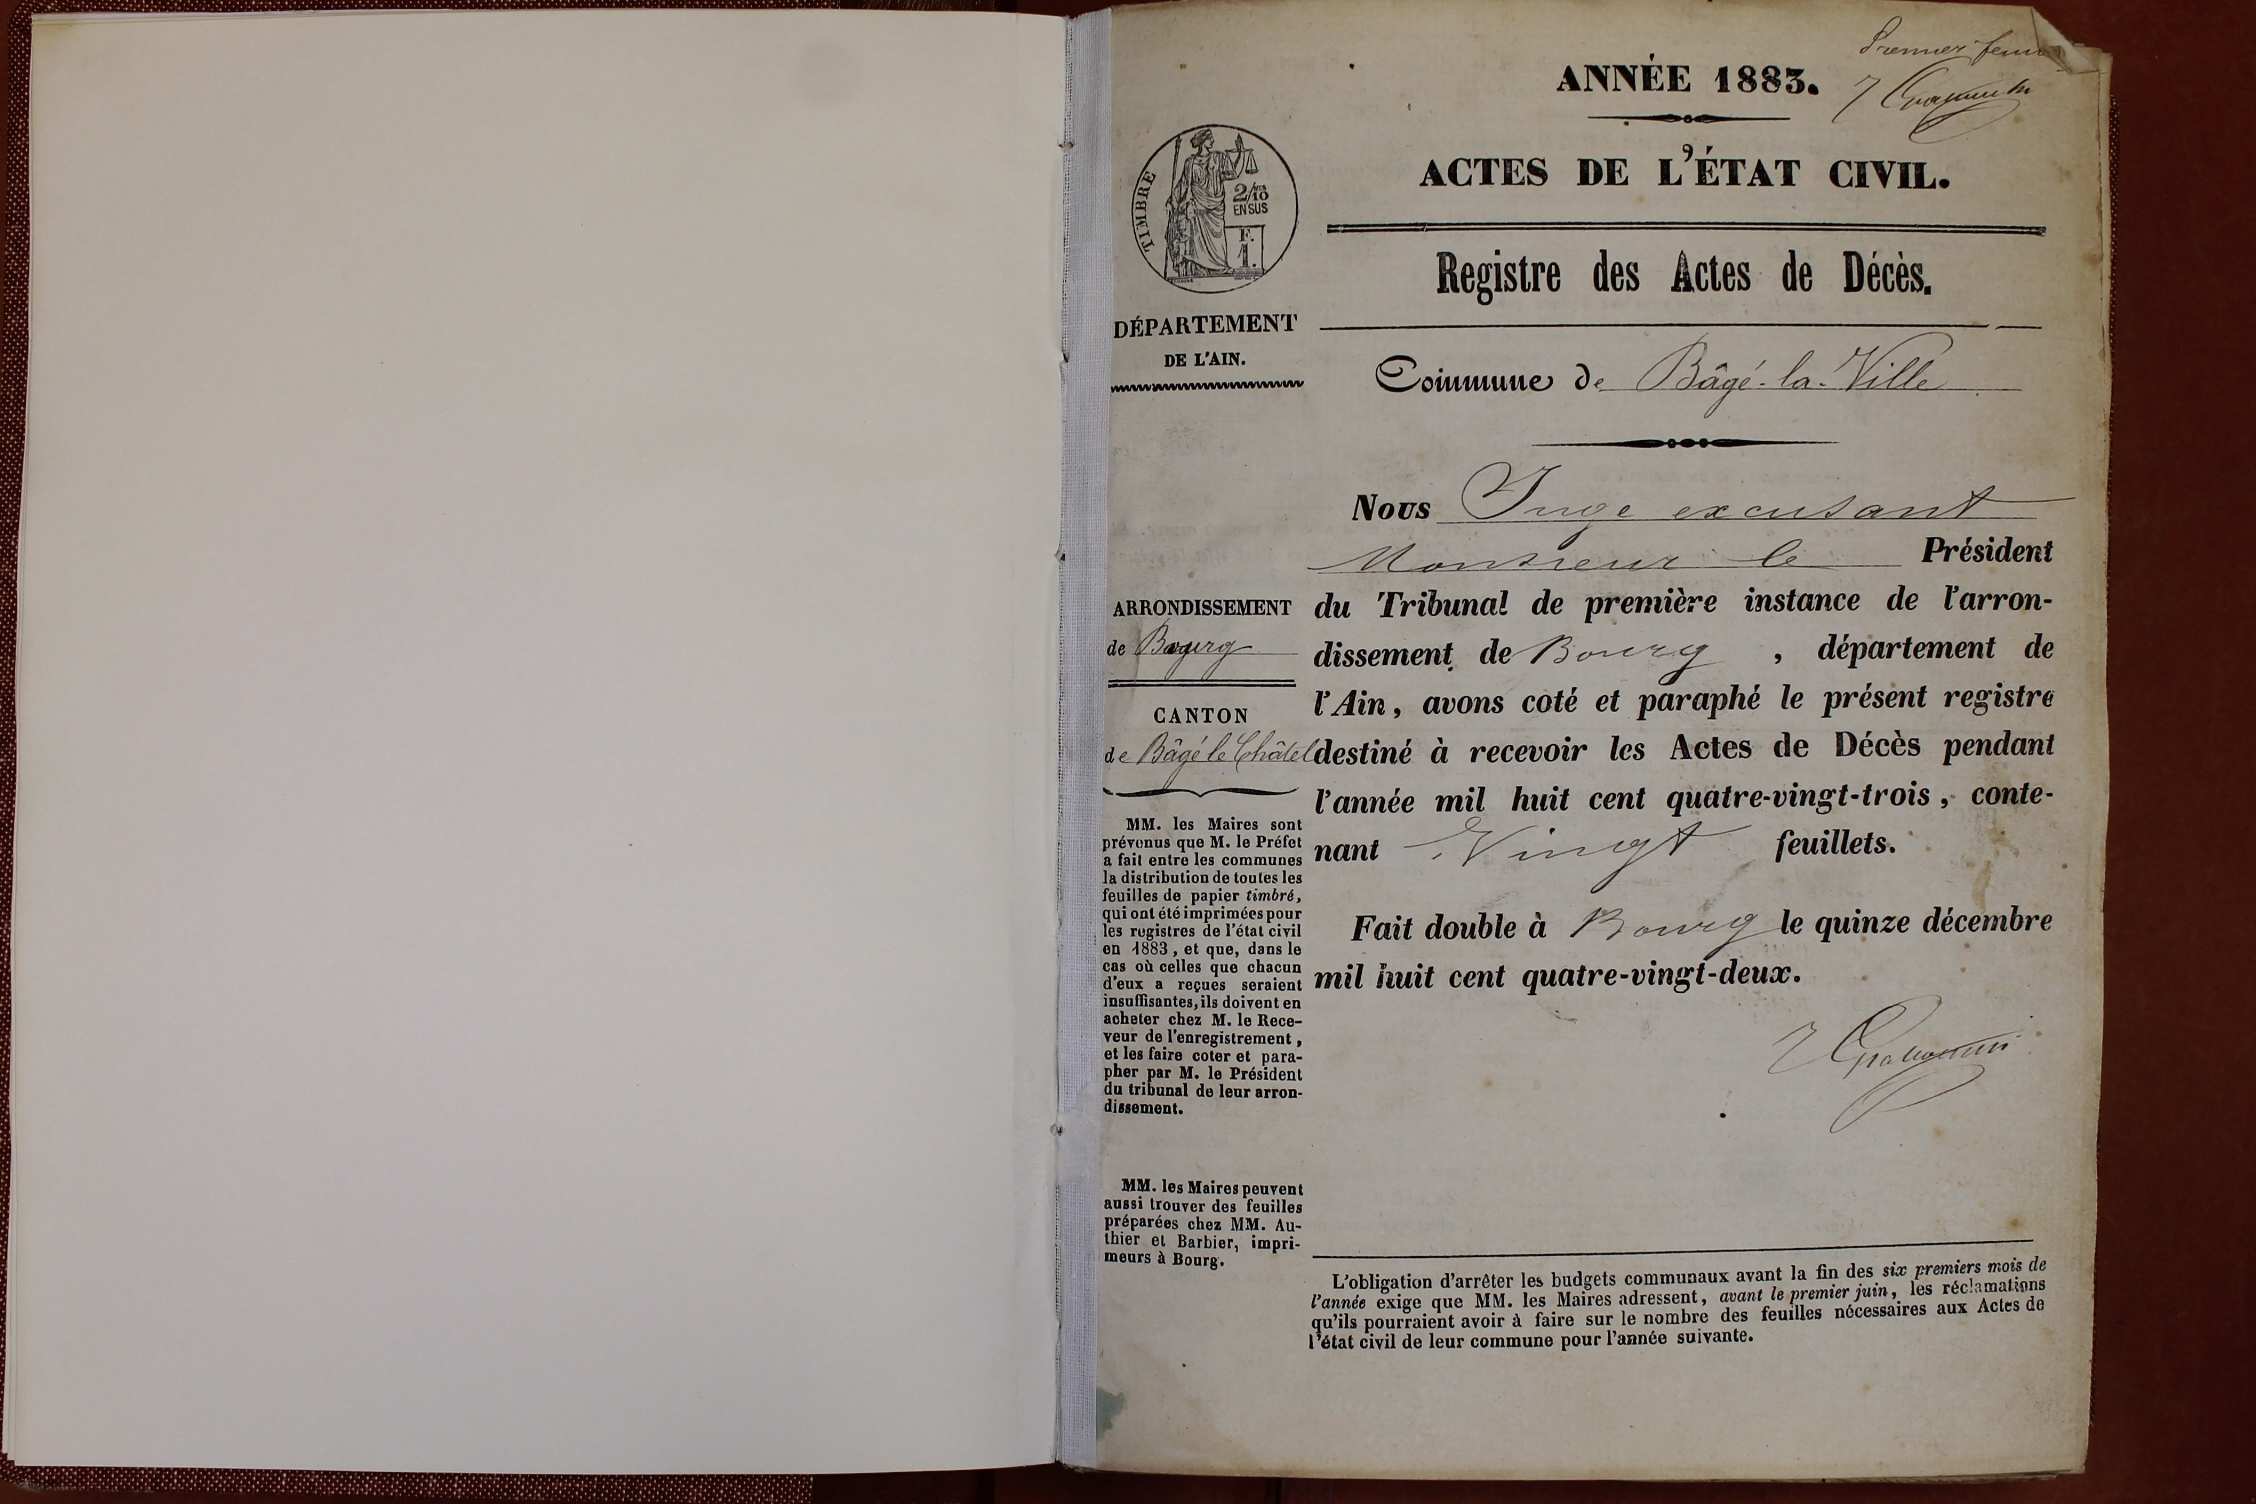 Premier
ANNÉE 1883.
ACTES DE L'ÉTAT CIVIL.
TIMBRE
2/10
EN SUS
F.
1.
Registre des Actes de Décès.
DÉPARTEMENT
DE L'AIN.
Commune de Bâgé-la-Ville
Nous Juge excusant
Monsieur le Président
du Tribunal de première instance de l'arron-
dissement de Bourg, département de
l'Ain, avons coté et paraphé le présent registre
destiné à recevoir les Actes de Décès pendant
l'année mil huit cent quatre-vingt-trois, conte-
nant Vingt feuillets.
Fait double à Bourg le quinze décembre
mil huit cent quatre-vingt-deux.
ARRONDISSEMENT
de Bourg
CANTON
de Bâgé le Châtel
MM. les Maires sont
prévenus que M. le Préfet
a fait entre les communes
la distribution de toutes les
feuilles de papier timbré,
qui ont été imprimées pour
les registres de l'état civil
en 1883, et que, dans le
cas où celles que chacun
d'eux a reçues seraient
insuffisantes, ils doivent en
acheter chez M. le Rece-
veur de l'enregistrement,
et les faire coter et para-
pher par M. le Président
du tribunal de leur arron-
dissement.
MM. les Maires peuvent
aussi trouver des feuilles
préparées chez MM. Au-
thier et Barbier, impri-
meurs à Bourg.
L'obligation d'arrêter les budgets communaux avant la fin des six premiers mois de
l'année exige que MM. les Maires adressent, avant le premier juin, les réclamations
qu'ils pourraient avoir à faire sur le nombre des feuilles nécessaires aux Actes de
l'état civil de leur commune pour l'année suivante.